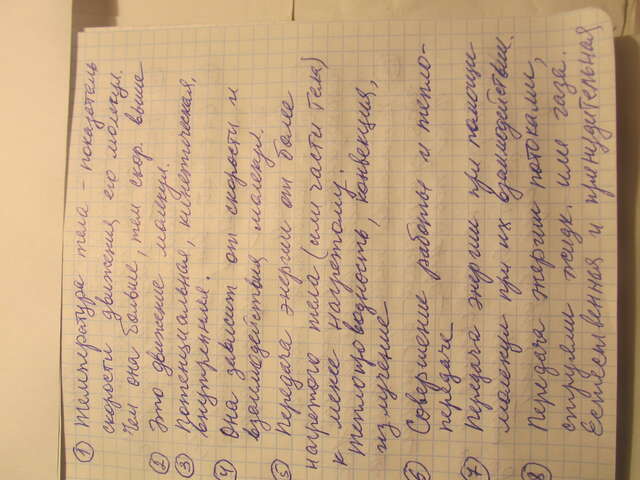 ① Температура тела - показатель
скорости движения его молекул.
Чем она больше, тем скор. выше
② Это движение молекул.
③ Потенциальная, кинетическая,
внутренняя.
④ Она зависит от скорости и
взаимодействия молекул.
⑤ Передача энергии от более
нагретого тела (или части тела)
к менее нагретому.
Теплопроводность, конвекция,
излучение
⑥ Совершение работы и тепло-
передаче
⑦ Передача энергии при помощи
молекул при их взаимодействии.
⑧ Передача энергии потоками,
струями жидк. или газа.
Естественная и принудительная